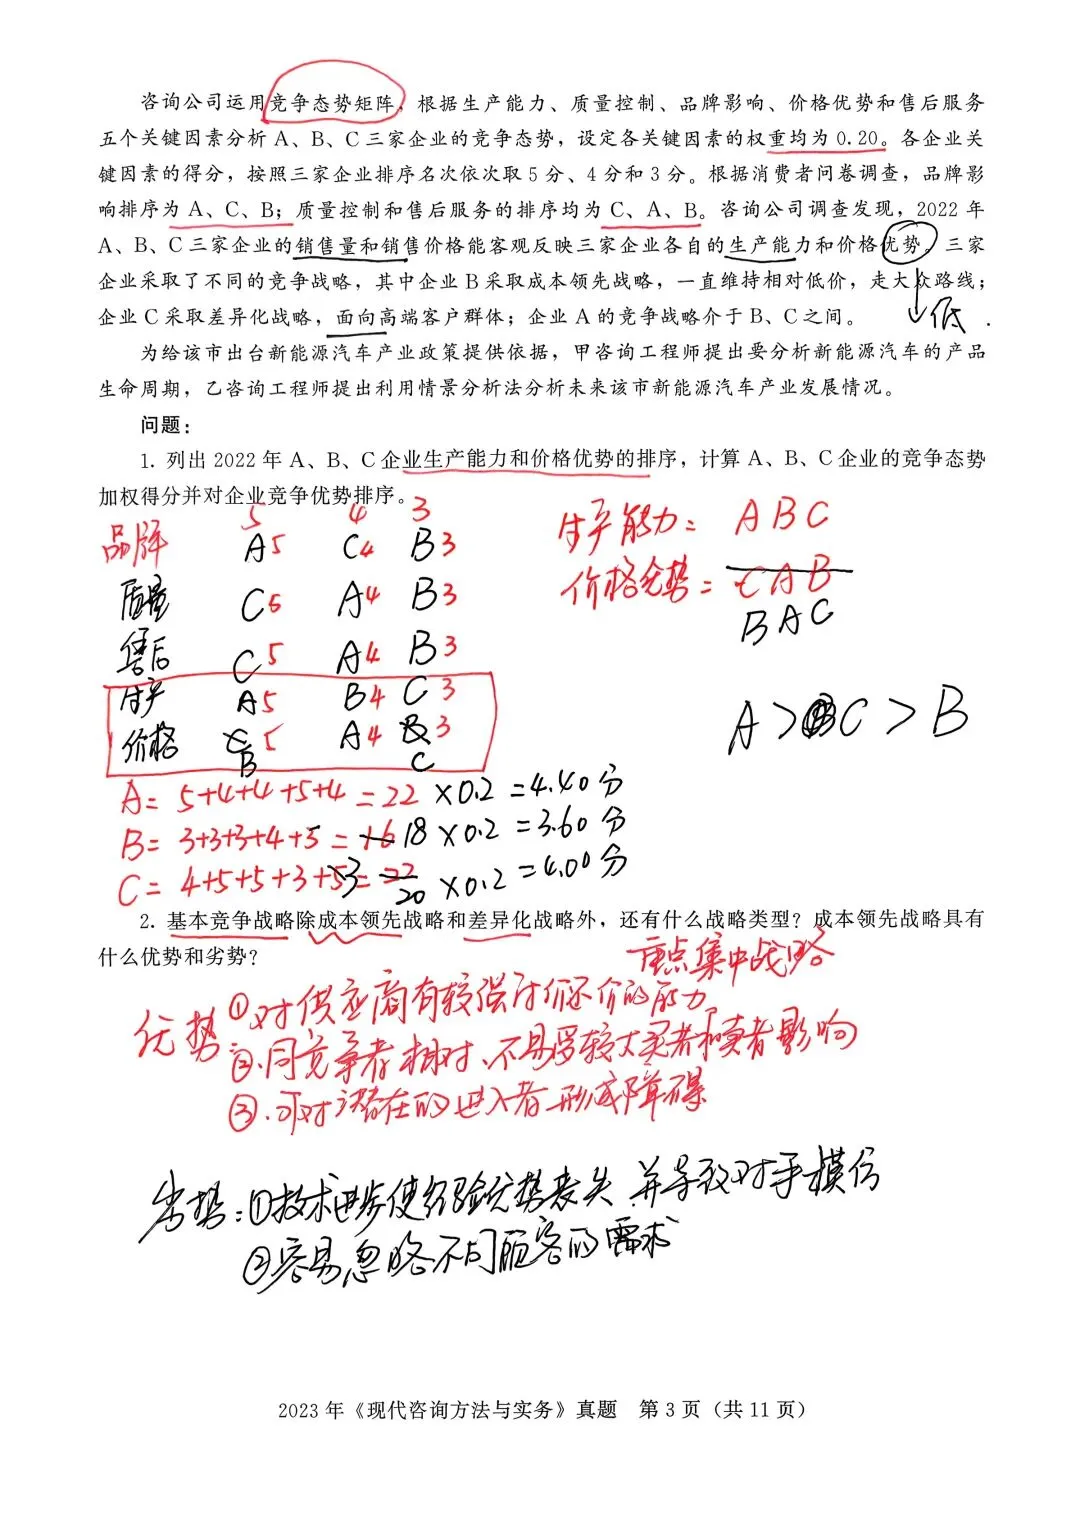 咨询公司运用竞争态势矩阵，根据生产能力、质量控制、品牌影响、价格优势和售后服务
五个关键因素分析 A、B、C 三家企业的竞争态势，设定各关键因素的权重均为 0.20。各企业关
键因素的得分，按照三家企业排序名次依次取 5 分、4 分和 3 分。根据消费者问卷调查，品牌影
响排序为 A、C、B；质量控制和售后服务的排序均为 C、A、B。咨询公司调查发现，2022 年
A、B、C 三家企业的销售量和销售价格能客观反映三家企业各自的生产能力和价格优势。三家
企业采取了不同的竞争战略，其中企业 B 采取成本领先战略，一直维持相对低价，走大众路线；
企业 C 采取差异化战略，面向高端客户群体；企业 A 的竞争战略介于 B、C 之间。
低
为给该市出台新能源汽车产业政策提供依据，甲咨询工程师提出要分析新能源汽车的产品
生命周期，乙咨询工程师提出利用情景分析法分析未来该市新能源汽车产业发展情况。
问题：
1. 列出 2022 年 A、B、C 企业生产能力和价格优势的排序，计算 A、B、C 企业的竞争态势
加权得分并对企业竞争优势排序。
5 4 3
品牌 A5 C4 B3
生产能力= A B C
质量 C5 A4 B3
价格优势= C A B
B A C
售后 C5 A4 B3
生产 A5 B4 C3
A > C > B
价格 C5 A4 B3
B C
A= 5+4+4+5+4 =22 ×0.2 =4.40分
B= 3+3+3+4+5 =16 18 ×0.2 =3.60分
C= 4+5+5+3+5 3 =22 20 ×0.2 =4.00分
2. 基本竞争战略除成本领先战略和差异化战略外，还有什么战略类型？成本领先战略具有
什么优势和劣势？
重点集中战略
优势：①对供应商有较强讨价还价的能力
②.同竞争者相对、不易受较大买者和卖者影响
③.可对潜在的进入者形成障碍
劣势：①技术进步使经验优势丧失，并导致对手模仿
②容易忽略不同顾客的需求
2023 年《现代咨询方法与实务》真题 第 3 页（共 11 页）